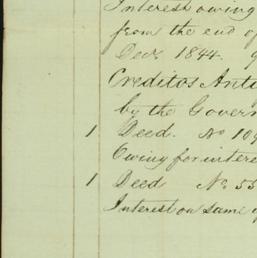 Interest owing
from the end of
Decr. 1844.
Creditos Anti
by the Govern
1 Deed. No 109
Owing for intere
1 Deed No. 55
Interest on same